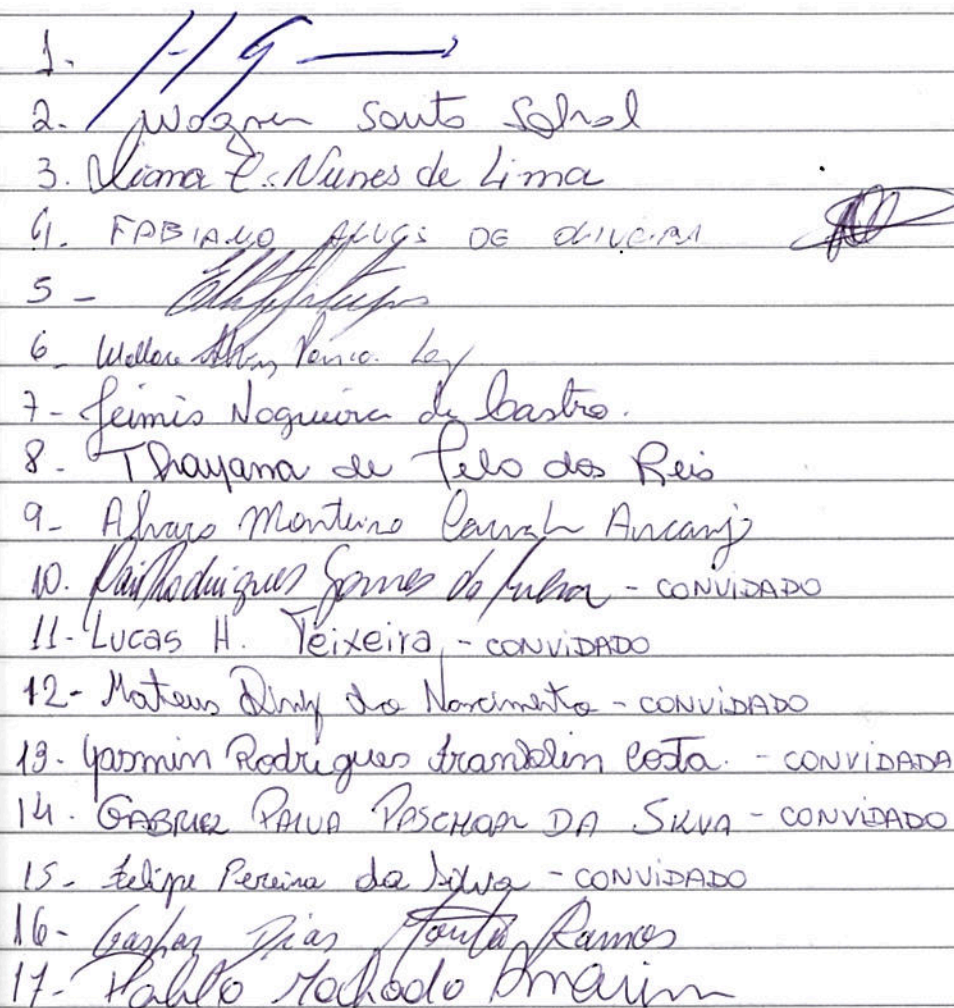 1.
2. Wagner Souto Sobral
3. Liana C. Nunes de Lima
4. FABIANO ALVES DE OLIVEIRA
5 -
6 -
7 - Jeimis Nogueira de Castro.
8. - Thayana de Melo dos Reis
9 - Alvaro Monteiro Arcanjo
10. Rodrigues Gomes da - CONVIDADO
11 - Lucas H. Teixeira - CONVIDADO
12 - Mateus Diniz do Nascimento - CONVIDADO
13. Yasmin Rodrigues Franklin Costa. - CONVIDADA
14. GABRIEL PAIVA PASCHOAL DA SILVA - CONVIDADO
15 - Felipe Pereira da Silva - CONVIDADO
16 - Gaspar Dias Ramos
17 - Pablo Machado Amorim